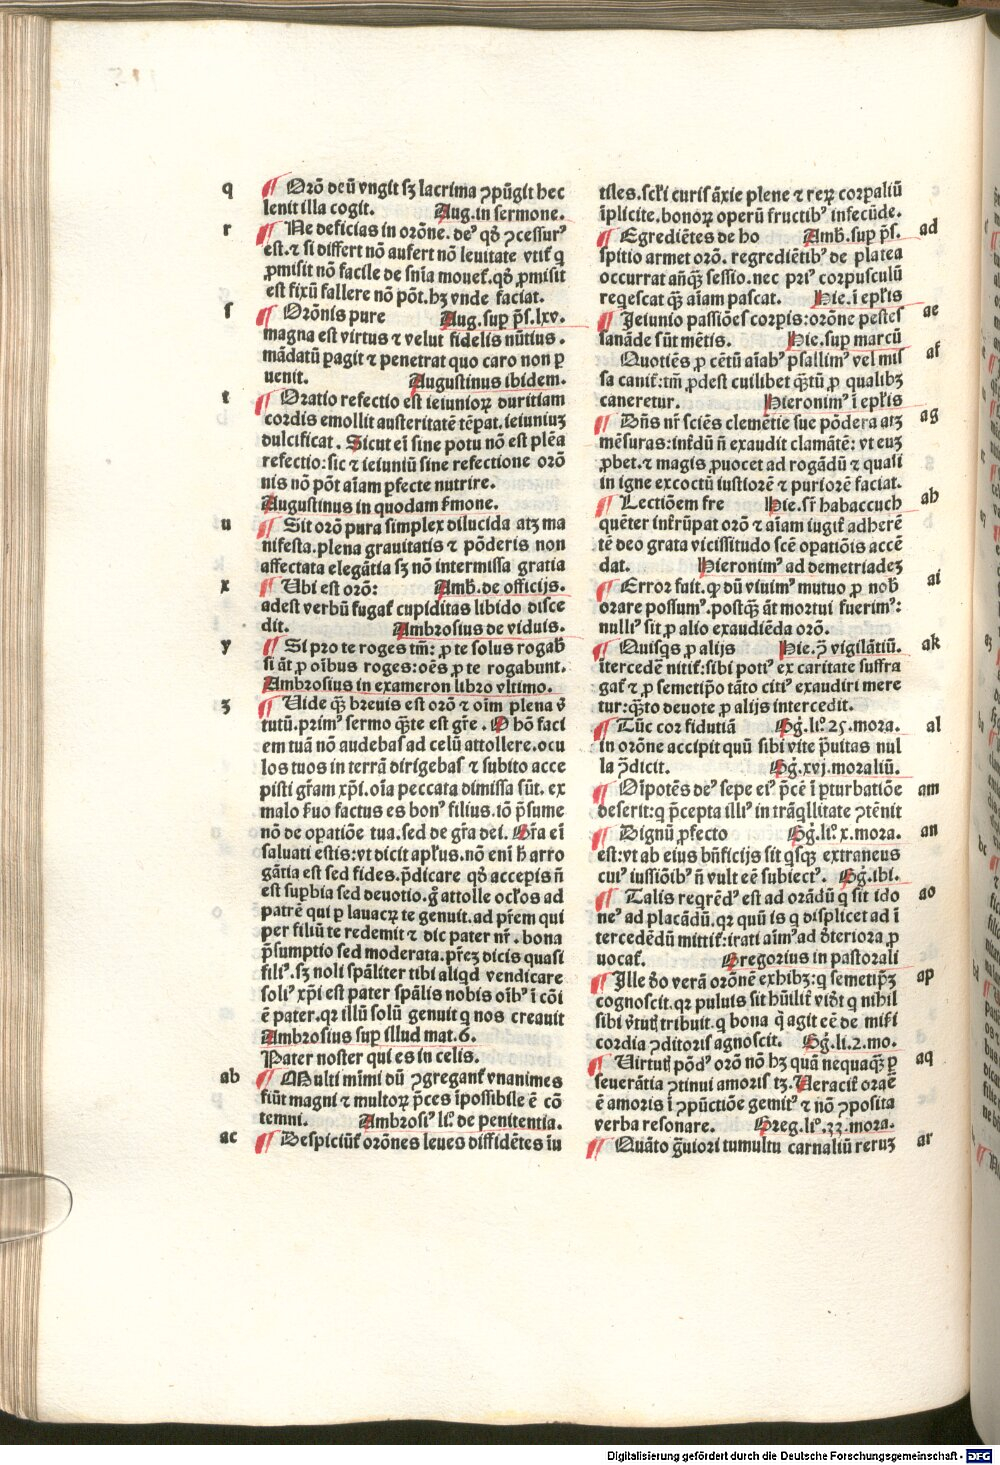 q
¶ Orõ deũ vngit sꝫ lacrima ↄpũgit hec
lenit illa cogit. Aug. in sermone.
r
¶ Ne deficias in orõne. deꝰ qđ ↄcessurꝰ
est. ⁊ si differt nõ aufert nõ leuitate vtiť q
ꝓmisit nõ facile de snĩa moueť. qđ ꝓmisit
est fixũ fallere nõ põt. hꝫ vnde faciat.
s
¶ Orõnis pure Aug. sup p̃s. lxv.
magna est virtus ⁊ velut fidelis nũtius.
mãdatũ ꝑagit ⁊ penetrat quo caro non ꝑ
uenit. Augustinus ibidem.
t
¶ Oratio refectio est ieiunioꝝ duritiam
cordis emollit austeritatẽ tẽꝑat. ieiuniuꝫ
dulcificat. Sicut ei̇̃ sine potu nõ est plẽa
refectio: sic ⁊ ieiuniũ sine refectione orõ
nis nõ põt aĩam ꝑfecte nutrire.
Augustinus in quodam ẜmone.
u
¶ Sit orõ pura simplex dilucida atꝫ ma
nifesta. plena grauitatis ⁊ põderis non
affectata elegãtia sꝫ nõ intermissa gratia
x
¶ Ubi est orõ: Amb. de officijs.
adest verbũ fugať cupiditas libido disce
dit. Ambrosius de viduis.
y
¶ Si pro te roges tm̃: ꝓ te solus rogab̃
si ãt ꝓ oĩbus roges: oẽs ꝓ te rogabunt.
Ambrosius in exameron libro vltimo.
ꝫ
¶ Uide q̃ꝫ breuis est orõ ⁊ oĩm plena v̾
tutũ. primꝰ sermo q̃te est gr̃e. O bõ faci
em tuã nõ audebas ad celũ attollere. ocu
los tuos in terrã dirigebas ⁊ subito acce
pisti gr̃am xp̃i. oĩa peccata dimissa sũt. ex
malo ẜuo factus es bonꝰ filius. iõ p̃sume
nõ de opatiõe tua. sed de gr̃a dei. Gr̃a ei̇̃
saluati estis: vt dicit apľus. nõ eni̇̃ h̃ arro
gãtia est sed fides. p̃dicare qđ acceꝑis ñ
est supbia sed deuotio. g̃ attolle ocľos ad
patrẽ qui ꝑ lauacꝝ te genuit. ad pr̃em qui
per filiũ te redemit ⁊ dic pater nr̃. bona
p̃sumptio sed moderata. pr̃eꝫ dicis quasi
filiꝰ. sꝫ noli sp̃aliter tibi aliqd vendicare
soliꝰ xp̃i est pater sp̃alis nobis oĩbꝰ ĩ cõi
ẽ pater. qꝛ illũ solũ genuit q nos creauit
Ambrosius sup illud mat. 6.
Pater noster qui es in celis.
ab
¶ Multi mĩmi dũ ↄgreganť vnanimes
fiũt magni ⁊ multoꝝ p̃ces ĩpossibile ẽ cõ
temni. Ambrosiꝰ li̊. de penitentia.
ac
¶ Despiciũť orõnes leues diffidẽtes ĩu
tiles. scľi curis ãxie plene ⁊ reꝝ corpaliũ
ĩplicite. bonoꝝ operũ fructibꝰ infecũde.
¶ Egrediẽtes de ho Amb. sup p̃s. ad
spitio armet orõ. regrediẽtibꝰ de platea
occurrat añq̃ꝫ sessio. nec priꝰ corpusculũ
reqescat q̃ꝫ aĩam pascat. Hie. ĩ epľis
¶ Ieiunio passiões corpis: orõne pestes ae
sanãde sũt mẽtis. Hie. sup marcũ
Quotiẽs ꝓ cẽtũ aĩabꝰ psallimꝰ vel mis af
sa caniť: tm̃ ꝓdest cuilibet q̃ꝫtũ ꝓ qualibꝫ
caneretur. Hieronimꝰ ĩ epľis
¶ Dñs nr̃ sciẽs clemẽtie sue põdera atꝫ ag
mẽsuras: intẽdũ ñ exaudit clamãtẽ: vt euꝫ
ꝓbet. ⁊ magis ꝓuocet ad rogãdũ ⁊ quasi
in igne excoctũ iustiorẽ ⁊ puriorẽ faciat.
¶ Lectiõem fre Hie. sr̃ habaccuch ah
quẽter inťrũpat orõ ⁊ aĩam iugiť adherẽ
tẽ deo grata vicissitudo scẽ opatiõis accẽ
dat. Hieronimꝰ ad demetriadeꝫ
¶ Error fuit. ꝙ dũ viuimꝰ mutuo ꝓ nob̃ ai
orare possumꝰ. postq̃ꝫ ãt mortui fuerimꝰ:
nulliꝰ sit ꝓ alio exaudiẽda orõ.
¶ Quisqs ꝓ alijs Hie. ↄ̃ vigilãtiũ. ak
ĩtercedẽ nitiť: sibi potiꝰ ex caritate suffra
gať ⁊ ꝓ semetip̃o tãto citiꝰ exaudiri mere
tur: q̃ꝫto deuote ꝓ alijs intercedit.
¶ Tũc cor fidutiã Gg̃. li̊. 25. mora. al
in orõne accipit quũ sibi vite p̃uitas nul
la ↄ̃dicit. Gg̃. xvj. moraliũ.
¶ Oĩpotẽs dẽꝰ sepe eiꝰ p̃cẽ ĩ ꝑturbatiõe am
deserit: q p̃cepta illiꝰ in trãqllitate ↄtẽnit
¶ Dignũ ꝓfecto Gg̃. li̊. x. mora. an
est: vt ab eius bñficijs sit qsqꝫ extraneus
cuiꝰ iussiõibꝰ ñ vult eẽ subiectꝰ. Gg̃. ibi.
¶ Talis reqrẽdꝰ est ad orãdũ q sit ido ao
neꝰ ad placãdũ. qꝛ quũ is q displicet ad ĩ
tercedẽdũ mittiť: irati aĩmꝰ ad d̾teriora ꝓ
uocať. Gregorius in pastorali
¶ Ille d̾o verã orõnẽ exhibꝫ: q semetipꝫ ap
cognoscit. qꝛ puluis sit hũiliť vid̾t q nihil
sibi v̾tutꝭ tribuit. q bona q̃ agit eẽ de miẜi
cordia ↄditoris agnoscit. Gg̃. li. 2. mo.
¶ Uirtutꝭ põdꝰ orõ nõ hꝫ quã nequaq̃ꝫ ꝑ aq
seuerãtia ↄtinui amoris tꝫ. Ueraciť oraẽ
ẽ amoris ĩ ↄpũctiõe gemitꝰ ⁊ nõ ↄposita
verba resonare. Greg. li̊. 33. mora.
¶ Quãto g̃uiori tumultu carnaliũ reruꝫ ar
Digitalisierung gefördert durch die Deutsche Forschungsgemeinschaft - DFG